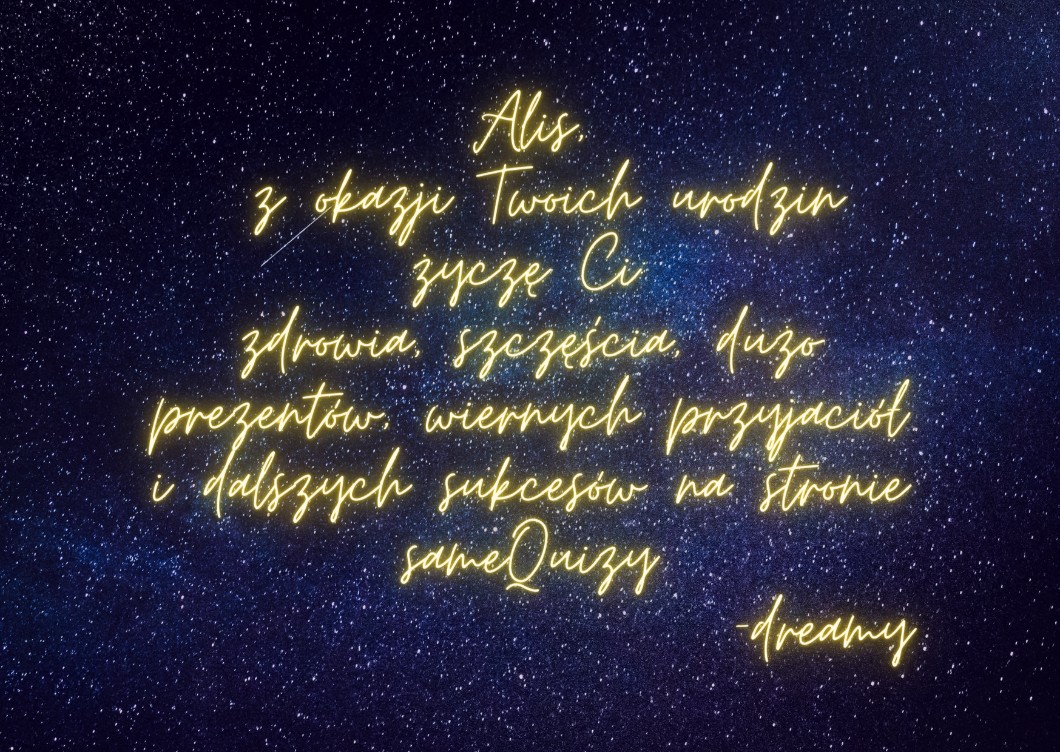 Alis,
z okazji Twoich urodzin
życzę Ci
zdrowia, szczęścia, dużo
prezentów, wiernych przyjaciół
i dalszych sukcesów na stronie
sameQuizy
-dreamy